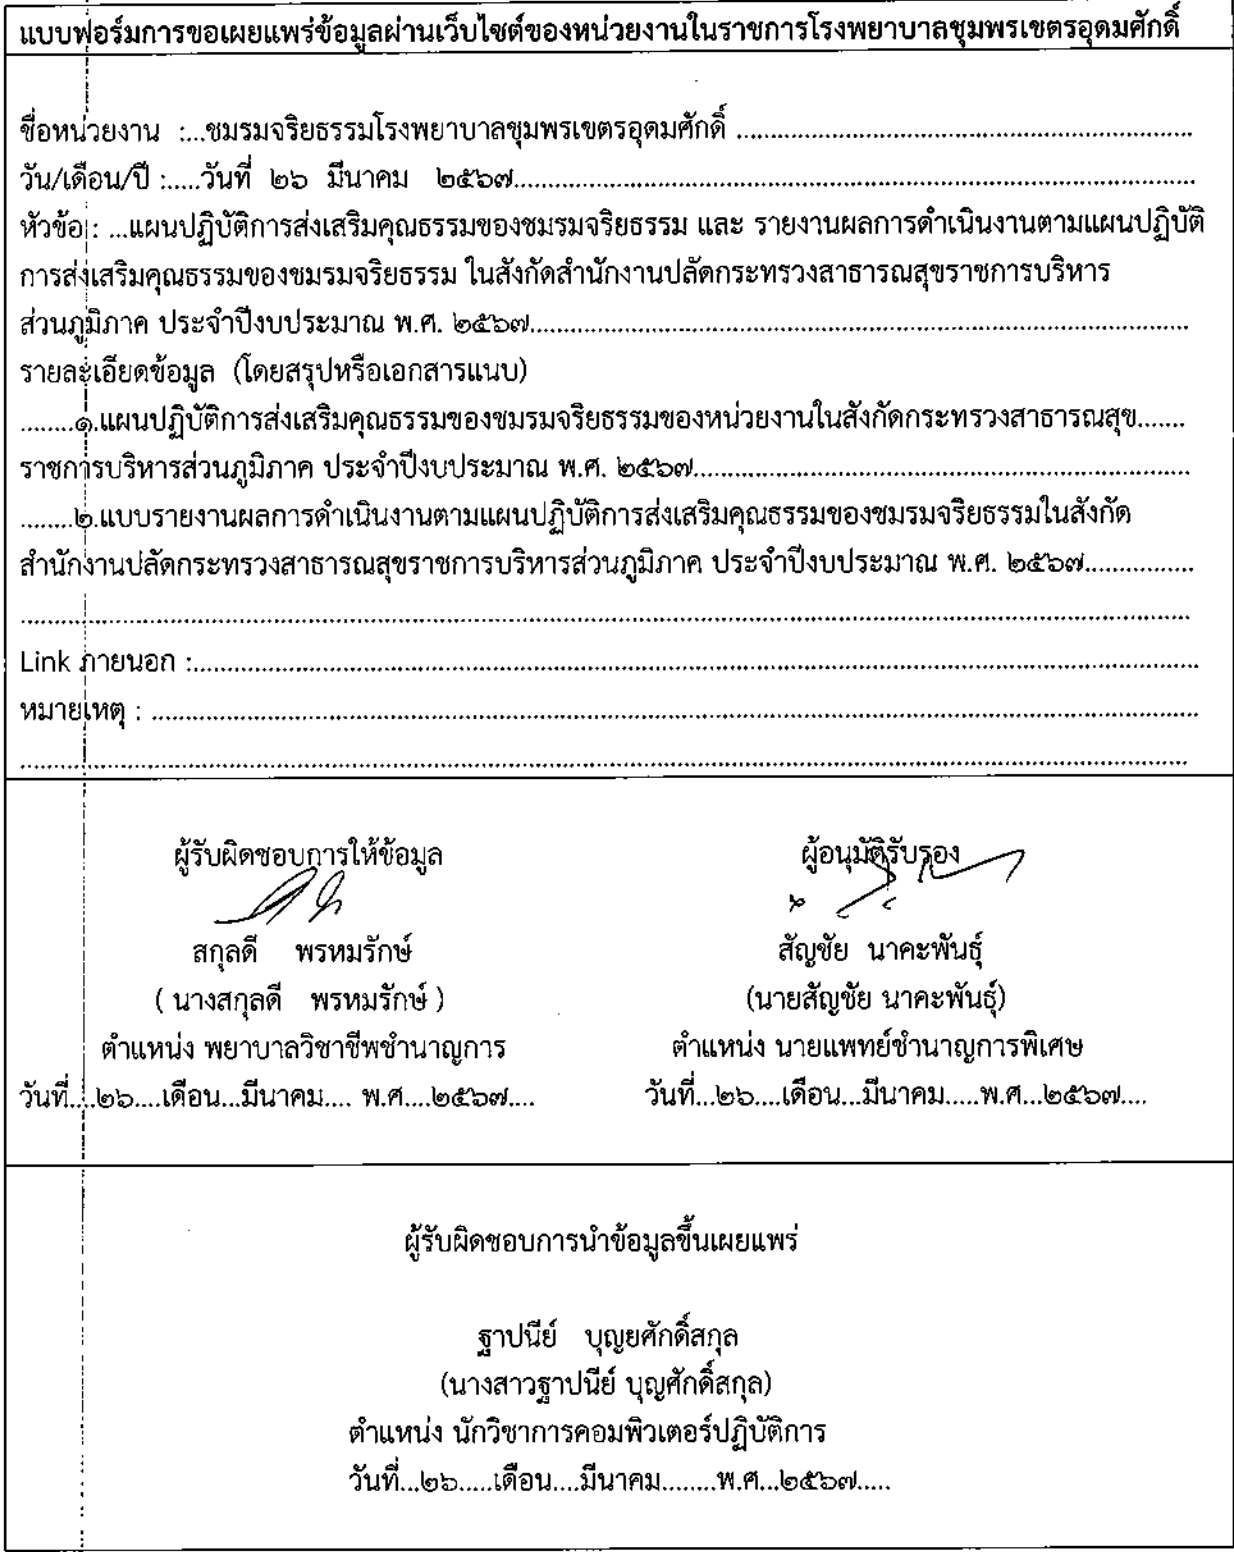 แบบฟอร์มการขอเผยแพร่ข้อมูลผ่านเว็บไซต์ของหน่วยงานในราชการโรงพยาบาลชุมพรเขตรอุดมศักดิ์
ชื่อหน่วยงาน :...ชมรมจริยธรรมโรงพยาบาลชุมพรเขตรอุดมศักดิ์ ....................................................................
วัน/เดือน/ปี :.....วันที่ ๒๖ มีนาคม ๒๕๖๗....................................................................................................
หัวข้อ : ...แผนปฏิบัติการส่งเสริมคุณธรรมของชมรมจริยธรรม และ รายงานผลการดำเนินงานตามแผนปฏิบัติ
การส่งเสริมคุณธรรมของชมรมจริยธรรม ในสังกัดสำนักงานปลัดกระทรวงสาธารณสุขราชการบริหาร
ส่วนภูมิภาค ประจำปีงบประมาณ พ.ศ. ๒๕๖๗..................................................................................................
รายละเอียดข้อมูล (โดยสรุปหรือเอกสารแนบ)
........๑.แผนปฏิบัติการส่งเสริมคุณธรรมของชมรมจริยธรรมของหน่วยงานในสังกัดกระทรวงสาธารณสุข.......
ราชการบริหารส่วนภูมิภาค ประจำปีงบประมาณ พ.ศ. ๒๕๖๗..........................................................................
........๒.แบบรายงานผลการดำเนินงานตามแผนปฏิบัติการส่งเสริมคุณธรรมของชมรมจริยธรรมในสังกัด
สำนักงานปลัดกระทรวงสาธารณสุขราชการบริหารส่วนภูมิภาค ประจำปีงบประมาณ พ.ศ. ๒๕๖๗................
....................................................................................................................................................................
Link ภายนอก :....................................................................................................................................................
หมายเหตุ : ..........................................................................................................................................................
....................................................................................................................................................................
ผู้รับผิดชอบการให้ข้อมูล ผู้อนุมัติรับรอง
สกุลดี พรหมรักษ์ สัญชัย นาคะพันธุ์
( นางสกุลดี พรหมรักษ์ ) (นายสัญชัย นาคะพันธุ์)
ตำแหน่ง พยาบาลวิชาชีพชำนาญการ ตำแหน่ง นายแพทย์ชำนาญการพิเศษ
วันที่....๒๖....เดือน...มีนาคม.... พ.ศ....๒๕๖๗.... วันที่...๒๖....เดือน...มีนาคม.....พ.ศ...๒๕๖๗....
ผู้รับผิดชอบการนำข้อมูลขึ้นเผยแพร่
ฐาปนีย์ บุญยศักดิ์สกุล
(นางสาวฐาปนีย์ บุญศักดิ์สกุล)
ตำแหน่ง นักวิชาการคอมพิวเตอร์ปฏิบัติการ
วันที่...๒๖.....เดือน....มีนาคม........พ.ศ...๒๕๖๗.....